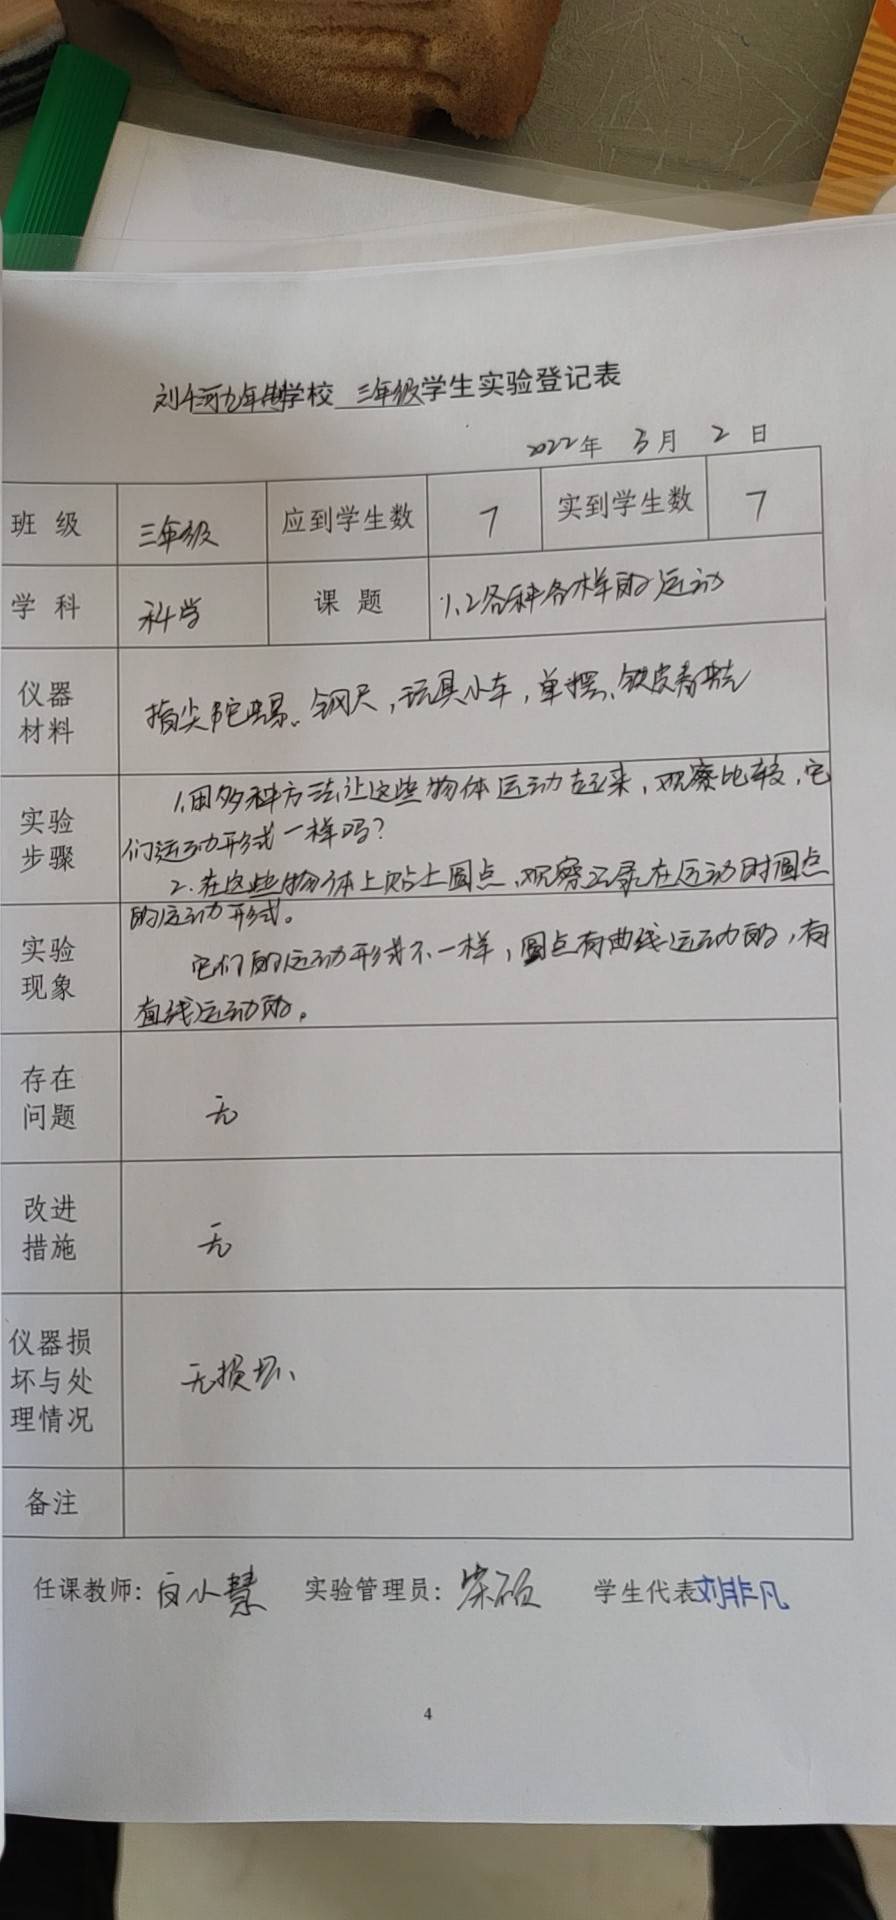 刘千河九年制学校 三年级学生实验登记表
2022年 3月 2日
班级 三年级 应到学生数 7 实到学生数 7
学科 科学 课题 1.2各种各样的运动
仪器材料 指尖陀螺、钢尺，玩具小车，单摆、铁皮青蛙
实验步骤 1.用多种方法让这些物体运动起来，观察比较，它
们运动形式一样吗？
2.在这些物体上贴上圆点，观察记录在运动时圆点
的运动形式。
实验现象 它们的运动形式不一样，圆点有曲线运动的，有
直线运动的。
存在问题 无
改进措施 无
仪器损坏与处理情况 无损坏、
备注
任课教师：白小慧 实验管理员： 学生代表刘非凡
4